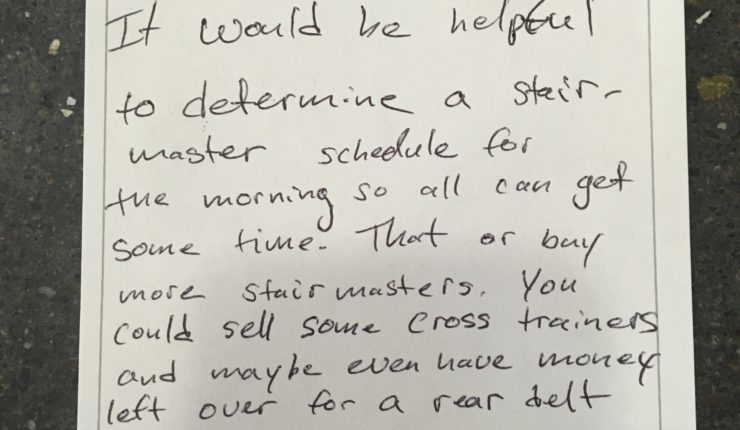 It would be helpful
to determine a stair-
master schedule for
the morning so all can get
some time. That or buy
more stairmasters. You
could sell some cross trainers
and maybe even have money
left over for a rear delt